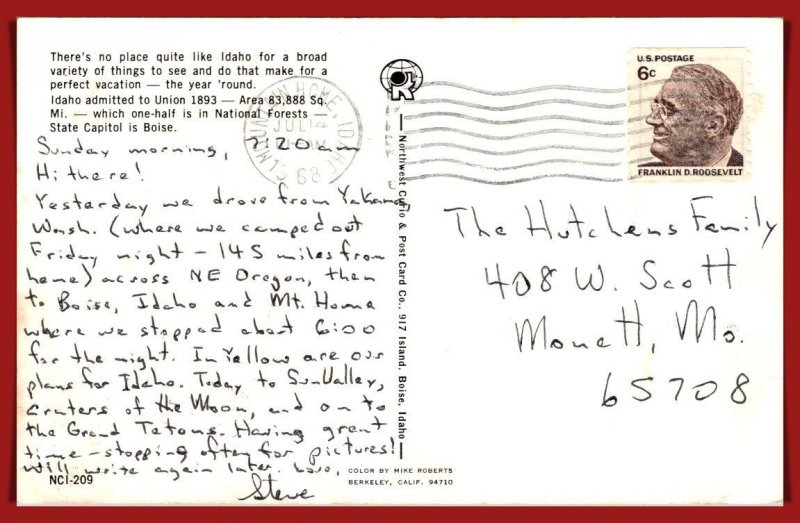 There's no place quite like Idaho for a broad
variety of things to see and do that make for a
perfect vacation — the year 'round.
Idaho admitted to Union 1893 — Area 83,888 Sq.
Mi. — which one-half is in National Forests —
State Capitol is Boise.
Sunday morning, 7:20 am
Hi there!
Yesterday we drove from Yakama,
Wash. (where we camped out
Friday night - 145 miles from
home) across NE Oregon, then
to Boise, Idaho and Mt. Home
where we stopped about 6:00
for the night. In Yellow are our
plans for Idaho. Today to Sun Valley,
Craters of the Moon, and on to
the Grand Tetons. Having great
time - stopping often for pictures!
Will write again later. Love,
Steve
NCI-209
COLOR BY MIKE ROBERTS
BERKELEY, CALIF. 94710
Northwest Curio & Post Card Co., 917 Island, Boise, Idaho
MOUNTAIN HOME, IDAHO
JUL 14
68
U.S. POSTAGE
6c
FRANKLIN D. ROOSEVELT
The Hutchens Family
408 W. Scott
Monett, Mo.
65708